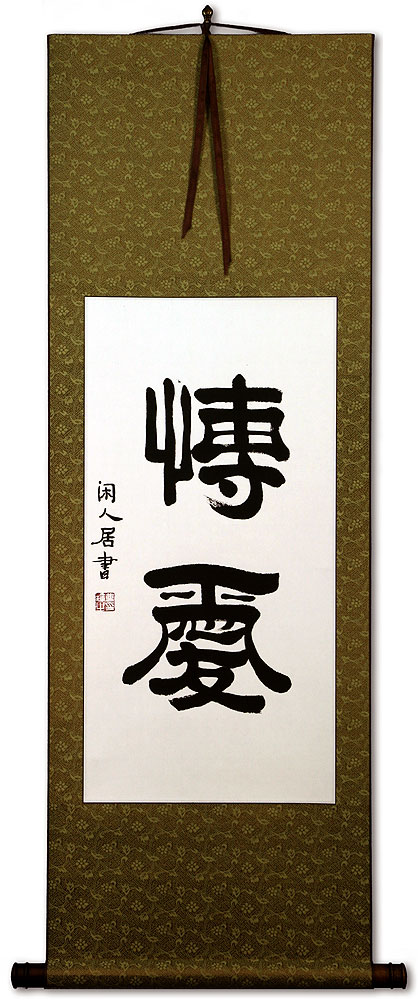 愽愛
闲人居書